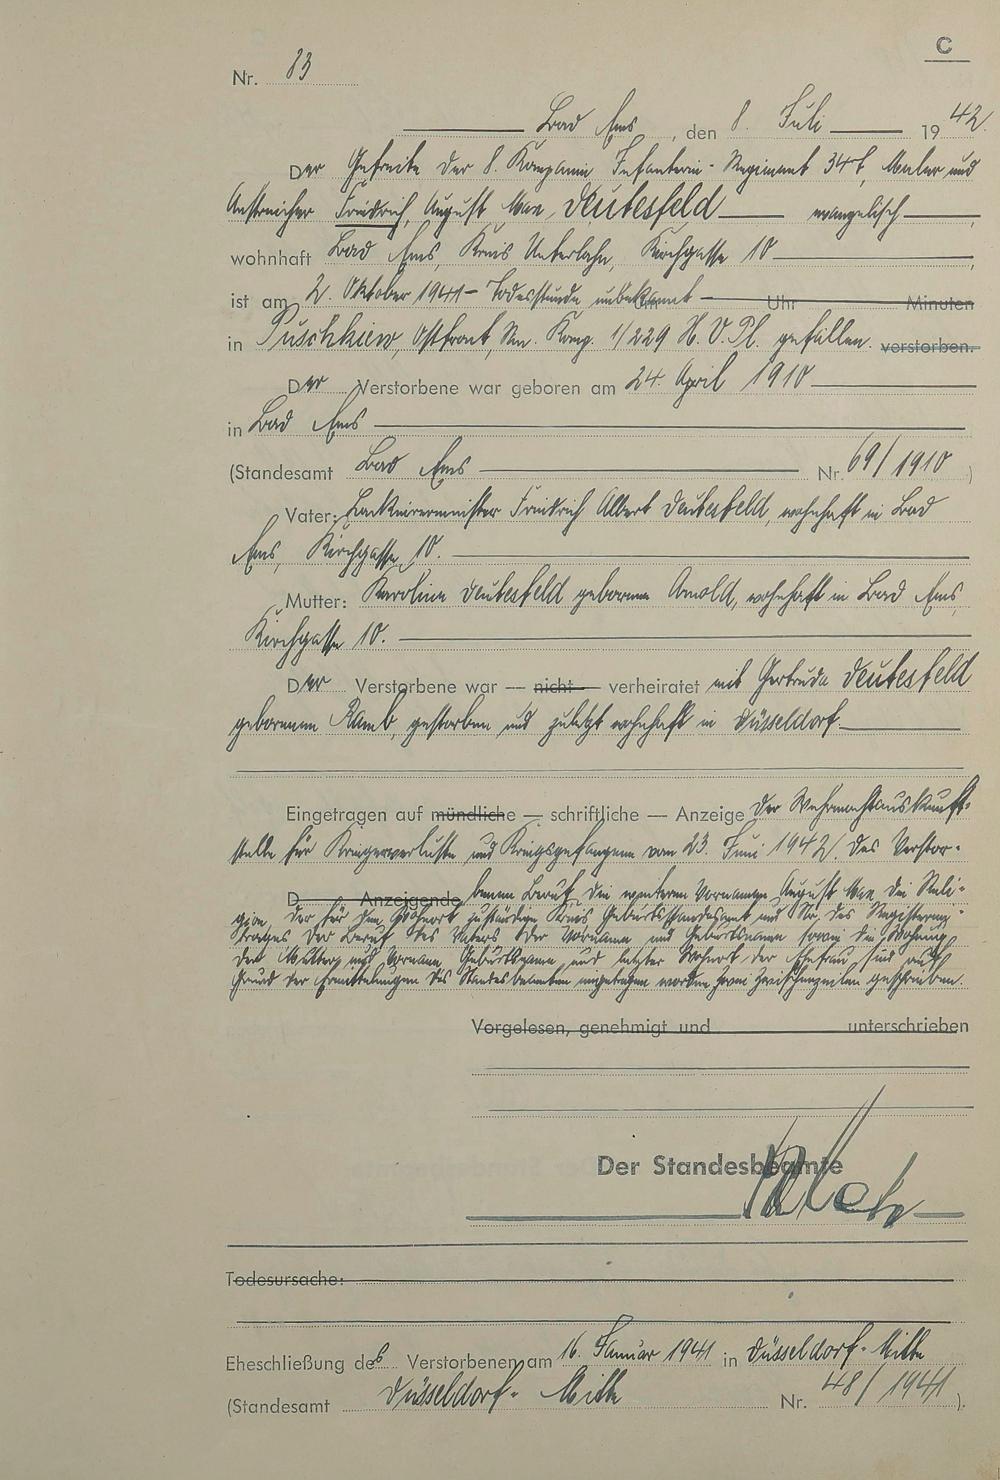 C
Nr. 83
Bad Ems, den 8. Juli 1942
Der Gefreite der 8. Kompanie Infanterie-Regiment Maler und
Anstreicher Friedrich, August Max Deubesfeld evangelisch,
wohnhaft Bad Ems, Kreis Unterlahn, Kirchgasse 10,
ist am 2. Oktober 1941 - Todesstunde unbekannt um Uhr Minuten
in Puschkiew, Ostfront, Sn. Komp. 1/229 H. V. Pl. gefallen. verstorben.
Der Verstorbene war geboren am 24. April 1910
in Bad Ems
(Standesamt Bad Ems Nr. 69/1910)
Vater: Lackierermeister Friedrich Albert Deubesfeld, wohnhaft in Bad
Ems, Kirchgasse 10.
Mutter: Karoline Deubesfeld geborene Arnold, wohnhaft in Bad Ems,
Kirchgasse 10.
Der Verstorbene war — nicht — verheiratet mit Gertruda Deubesfeld
geborenen Ramb, gestorben und zuletzt wohnhaft in Düsseldorf
Eingetragen auf mündliche — schriftliche — Anzeige der Wehrmachtauskunft-
stelle für Kriegerverluste und Kriegsgefangene vom 23. Juni 1942. Des Verstor-
D Anzeigende benen Beruf, die weiteren Vornamen August Max die Reli-
gion, der für den zuständige Kreis Geburtsstandesamt und Nr. des Registerein-
trages der Beruf des Vaters der Vorname und Geburtsname sowie die Wohnung
der Mutter, und Vorname, Geburtsname und letzter Wohnort der Ehefrau, sind auf
Grund der Ermittelungen des Standesbeamten eingetragen worden. Zwei Zwischenzeilen geschrieben.
Vorgelesen, genehmigt und unterschrieben
Der Standesbeamte
Todesursache:
Eheschließung des Verstorbenen am 16. Januar 1941 in Düsseldorf-Mitte
(Standesamt Düsseldorf-Mitte Nr. 48/1941).